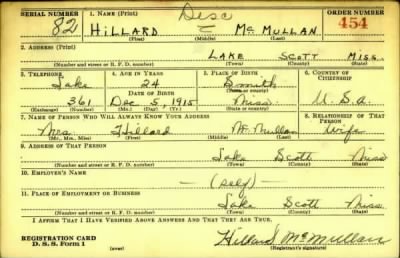 SERIAL NUMBER 1. NAME (Print) ORDER NUMBER
82 HILLARD Mc MULLAN 454
(First) (Middle) (Last)
2. ADDRESS (Print)
LAKE SCOTT MISS.
(Number and street or R. F. D. number) (Town) (County) (State)
3. TELEPHONE 4. AGE IN YEARS 5. PLACE OF BIRTH 6. COUNTRY OF CITIZENSHIP
Lake 24 Smith
DATE OF BIRTH (Town or county)
361 Dec 5, 1915 Miss. U.S.A.
(Exchange) (Number) (Mo.) (Day) (Yr.) (State or country)
7. NAME OF PERSON WHO WILL ALWAYS KNOW YOUR ADDRESS 8. RELATIONSHIP OF THAT PERSON
Mrs. Hillard McMullan Wife
(Mr., Mrs., Miss) (First) (Middle) (Last)
9. ADDRESS OF THAT PERSON
Lake Scott Miss
(Number and street or R. F. D. number) (Town) (County) (State)
10. EMPLOYER'S NAME
(self)
11. PLACE OF EMPLOYMENT OR BUSINESS
Lake Scott Miss.
(Number and street or R. F. D. number) (Town) (County) (State)
I AFFIRM THAT I HAVE VERIFIED ABOVE ANSWERS AND THAT THEY ARE TRUE.
REGISTRATION CARD
D. S. S. Form 1 (over) Hillard McMullan
(Registrant's signature)